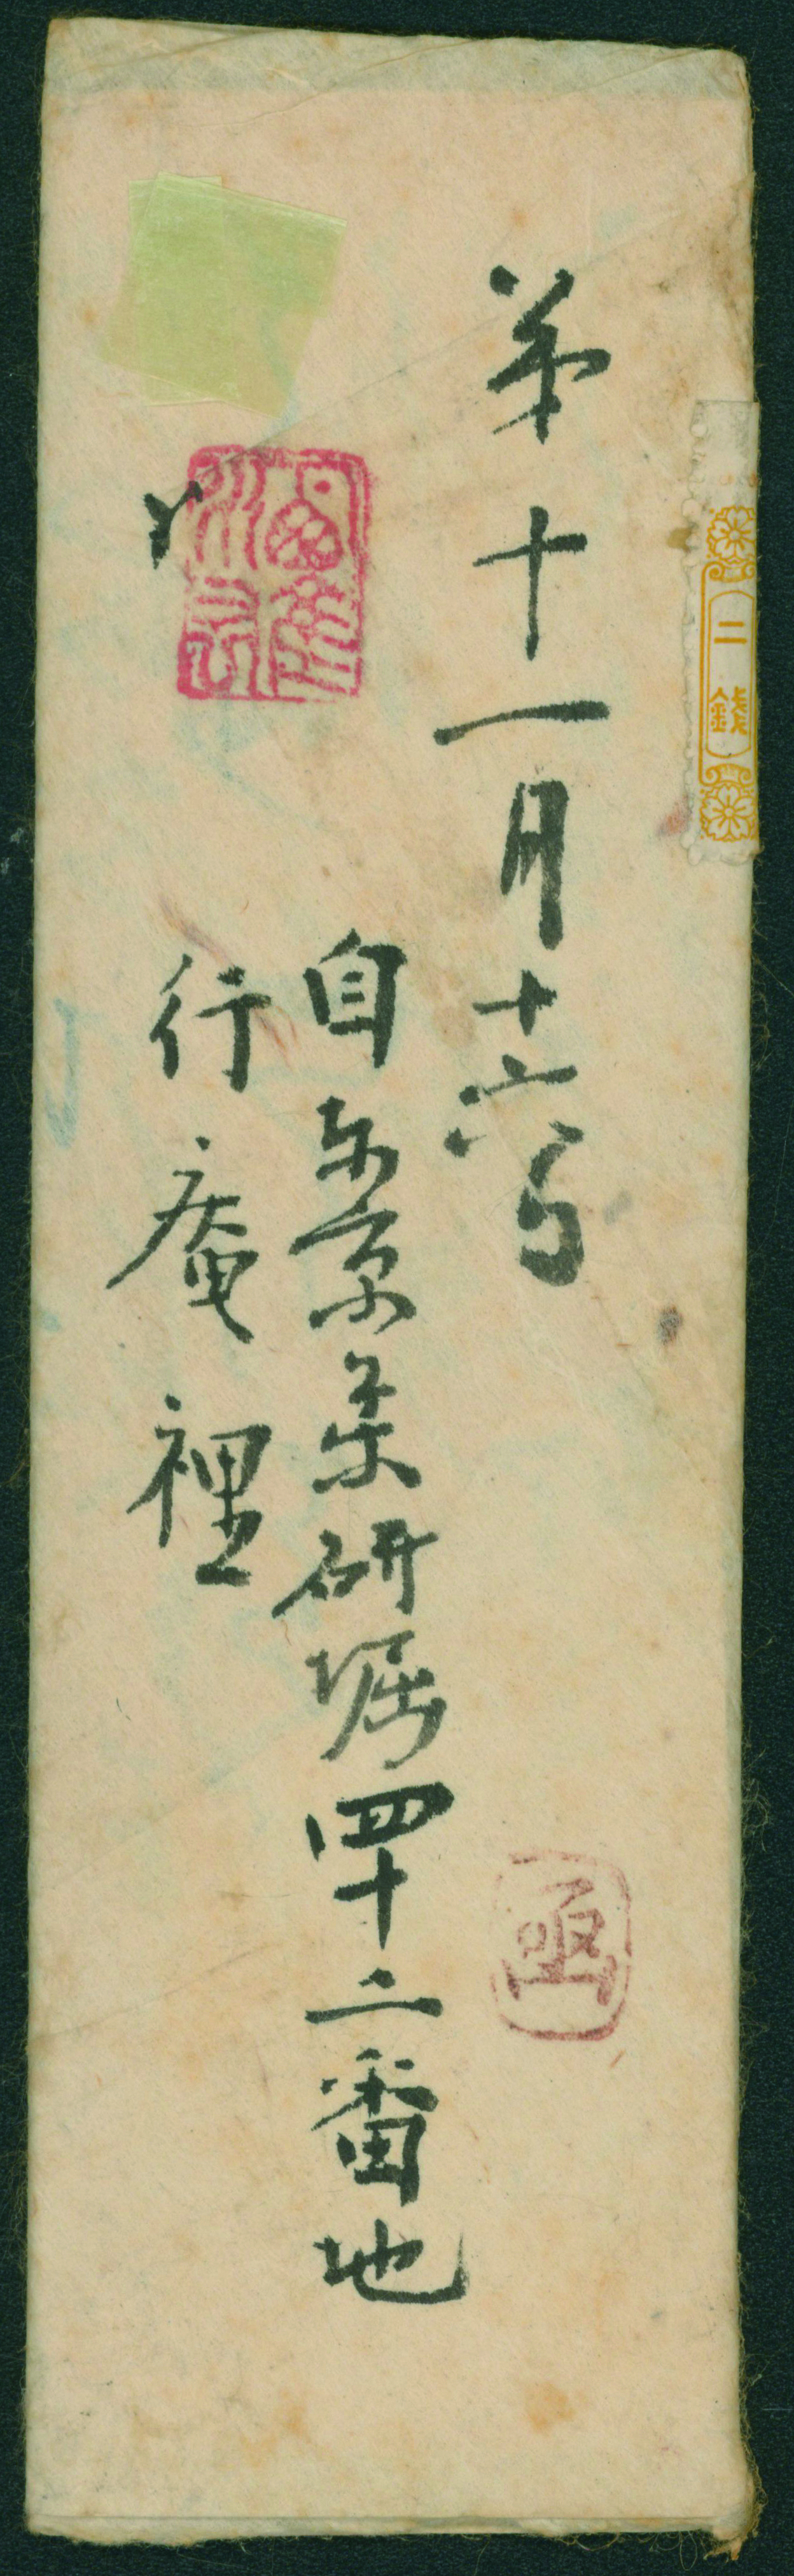 二錢
第十一月十六日
函
自東京薬研堀四十二番地
行庵裡